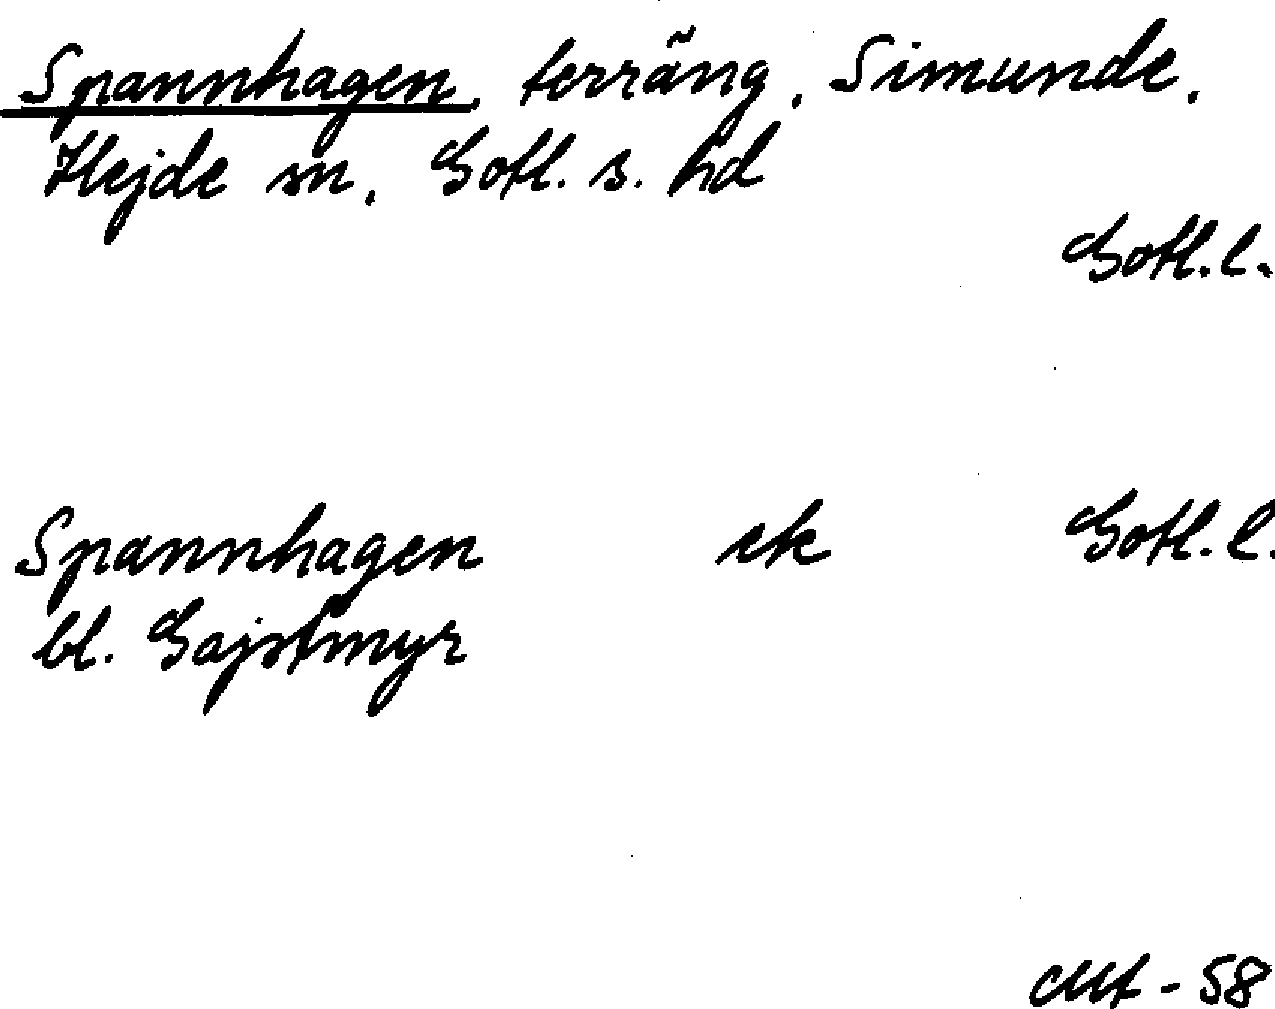 Spannhagen, terräng, Simunde,
Hejde sn, Gotl. s. hd
Gotl. l.
Spannhagen ek Gotl. l.
bl. Gajstmyr
-58